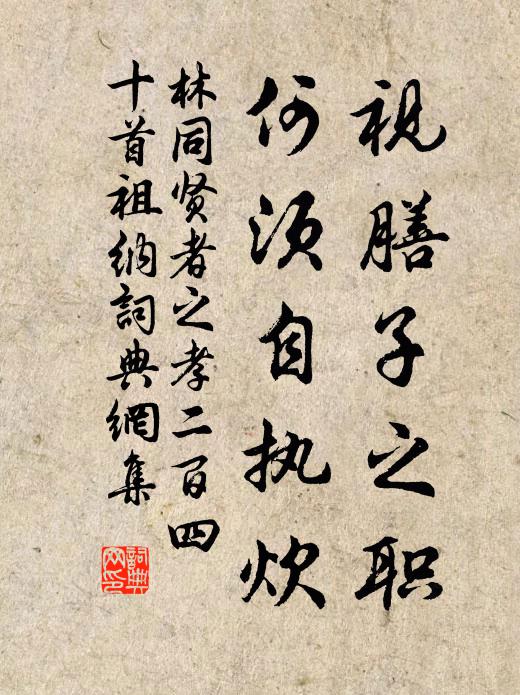 视膳子之职
何须自执炊
林同贤者之孝二百四
十首祖纳詞典網集
詞典
网印